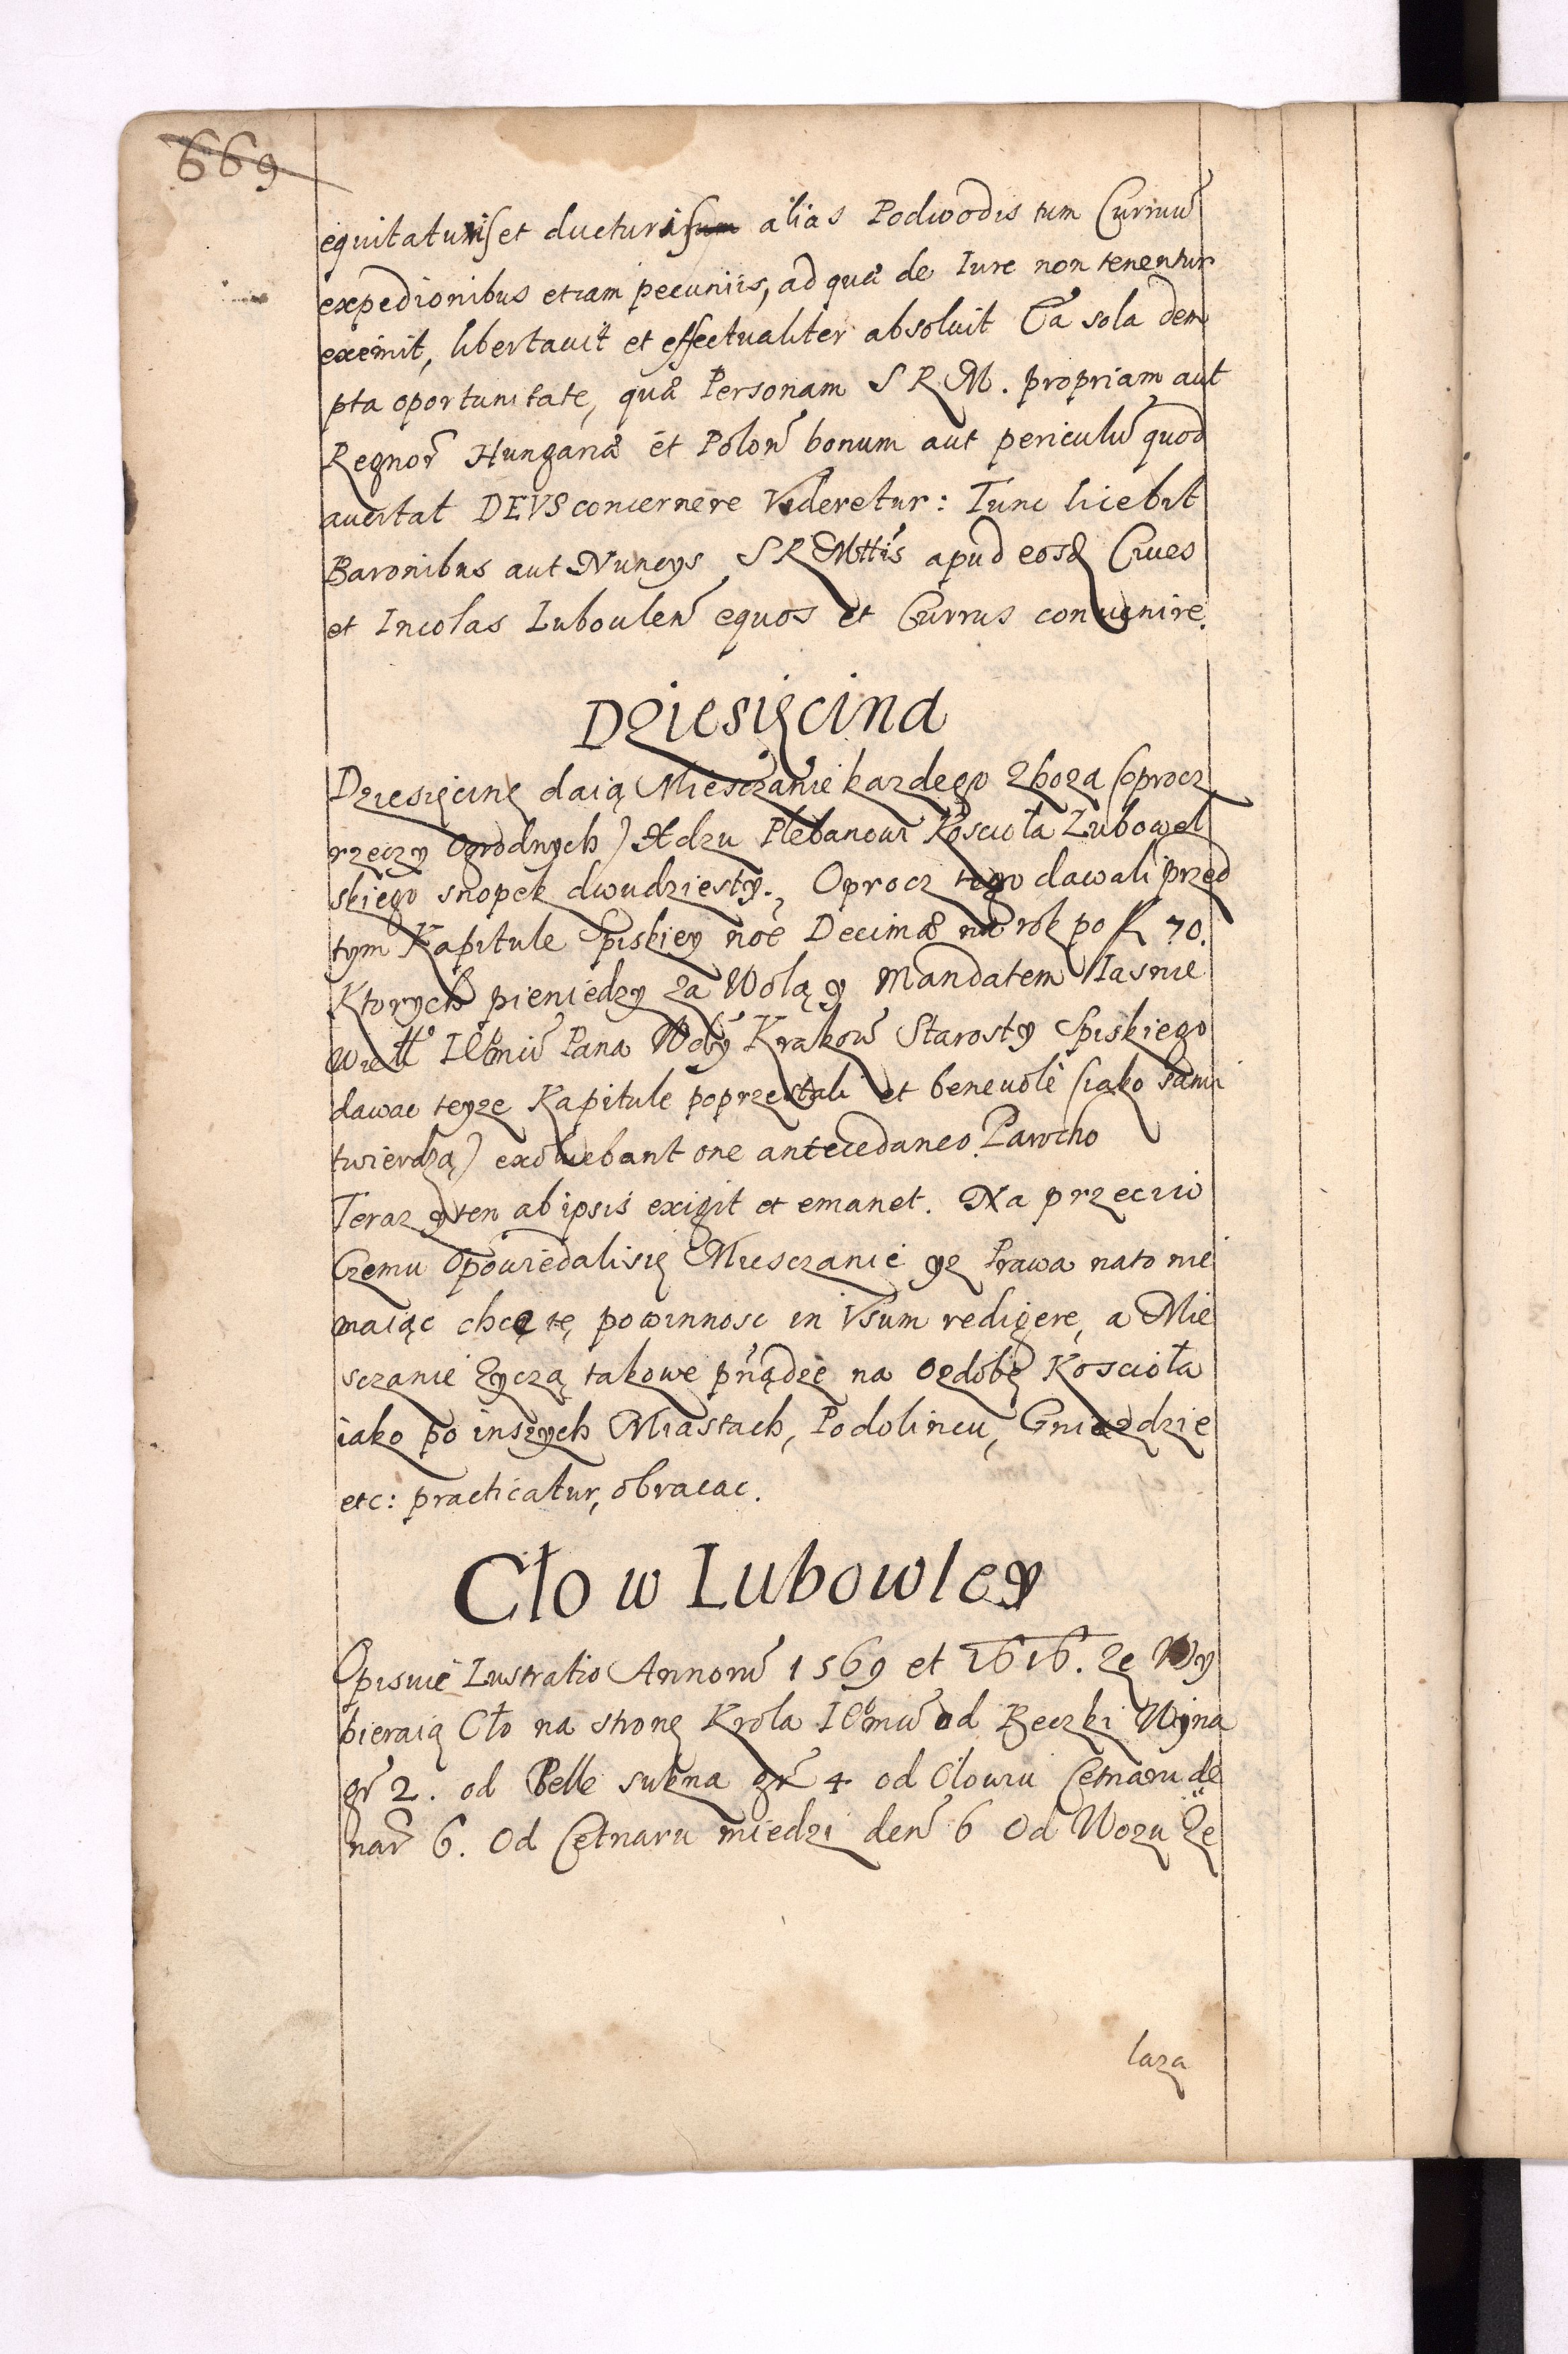 669
equitaturis et ducturis alias Podwodis tum Curruũ
expedionibus etiam pecuniis, ad quæ de Iure non tenentur
exemit, libertauit et effectualiter absoluit Ea sola dem
pta oportunitate, quæ Personam S R M. propriam aut
Regnor Hungariæ et Polon bonum aut periculũ quod
auertat DEVS concernere Videretur: Tunc licebit
Baronibus aut Nuncys S R Mttis apud eosd Ciues
et Incolas Luboulen equos et Currus conuenire.
Dziesięcina
Dziesięcinę daią Miesczanie kazdego zboza (oprocz
rzeczy Ogrodnych) Xdzu Plebanowi Koscioła Lubowel
skiego snopek dwudziesty., Oprocz tego dawali przed
tym Kapitule Spiskiey noe Decimæ na rok po fl 70.
Ktorych pieniedzy za Wolą y Mandatem Iasnie
Wiel Pana Wdy Krakow Starosty Spiskiego
dawac teyze Kapitule poprzestali et beneuolè (iako sami
twierdzą) exoluebant one antecedaneo Parocho
Teraz y ten ab ipsis exigit et emanet. Na przeciw
Czemu Opowiedali się Miesczanie yz Prawa nato nie
maiąc chcę tę powinnosc in Vsum redigere, a Mie
sczanie zyczą takowe pñądze na Ozdobę Koscioła
iako po inszych Miastach, Podolincu, Gniazdzie
etc: practicatur, obracac.
Cło w Lubowley
Opisuie Lustratio Annorũ 1569 et 1616. Ze Wy
bieraią Cło na stronę Krola od Beczki Wina
gr 2. od Belle sukna gr 4 od Ołowiu Cetnaru de
nar 6. Od Cetnaru miedzi den 6 Od Wozu Ze
laza